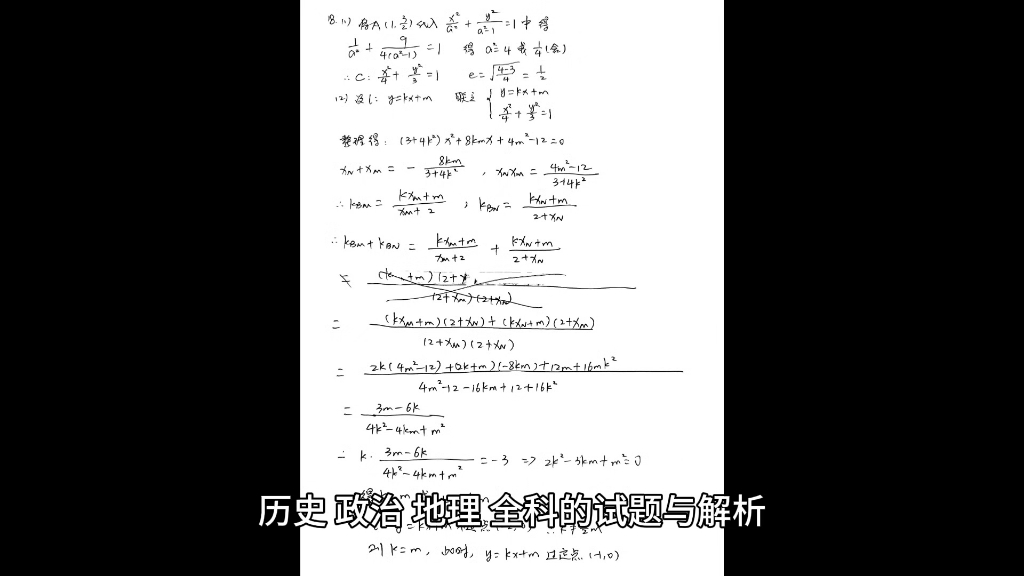 8.(1) 将A(1,3/2)代入 x²/a² + y²/(a²-1) =1 中 得
1/a² + 9/4(a²-1) =1 得 a²=4 或 1/4(舍)
∴ C: x²/4 + y²/3 =1 e=√((4-3)/4) = 1/2
(2) 设l: y=kx+m 联立 { y=kx+m
x²/4 + y²/3 =1
整理得: (3+4k²)x²+8kmx+4m²-12=0
xN+xM = - 8km/(3+4k²) , xNxM = (4m²-12)/(3+4k²)
∴ kBM = (kxM+m)/(xM+2) , kBN = (kxN+m)/(2+xN)
∴ kBM+kBN = (kxM+m)/(xM+2) + (kxN+m)/(2+xN)
= ((kxM+m)(2+xN)+(kxN+m)(2+xM))/((2+xM)(2+xN))
= (2k(4m²-12)+(2k+m)(-8km)+12m+16mk²)/(4m²-12-16km+12+16k²)
= (3m-6k)/(4k²-4km+m²)
∴ k· (3m-6k)/(4k²-4km+m²) =-3 => 2k²-3km+m²=0
历史 政治 地理 全科的试题与解析
则 k=m, 此时, y=kx+m 过定点 (-1,0)